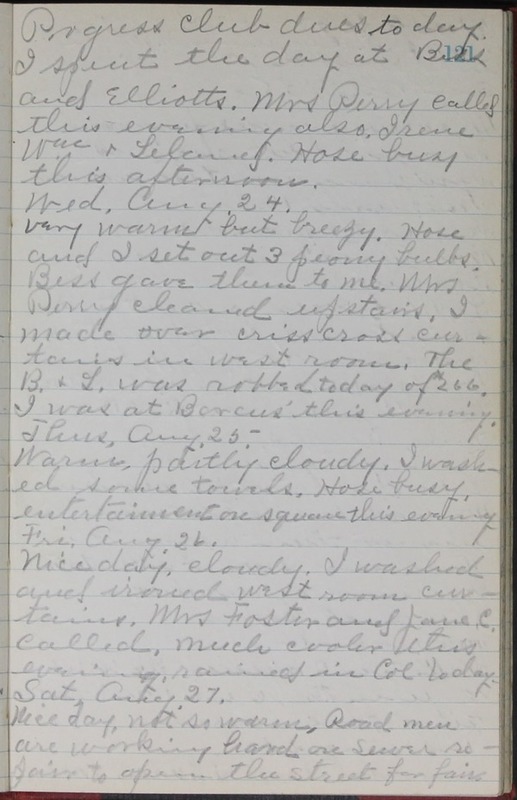 Progress Club dues today.
I spent the day at Bess 121
and Elliotts. Mrs Perry called
this evening also, Irene
Wac & Leland. Hose busy
this afternoon.
Wed, Aug 24.
very warm but breezy. Hose
and I set out 3 peony bulbs.
Bess gave them to me. Mrs
Perry cleaned upstairs. I
made over crisscross cur-
tains in west room. The
B. & L. was robbed today of $266.
I was at Borcus' this evening.
Thus, Aug. 25.
Warm, partly cloudy. I wash-
ed some towels. Hose busy,
entertainment on square this evening
Fri, Aug 26.
Nice day, cloudy. I washed
and ironed west room cur-
tains. Mrs Foster and Jane C.
called, much cooler this
evening, rained in Col. today.
Sat, Aug. 27.
Nice day, not so warm, Road men
are working hard on sewer so-
fair to open the street for fair